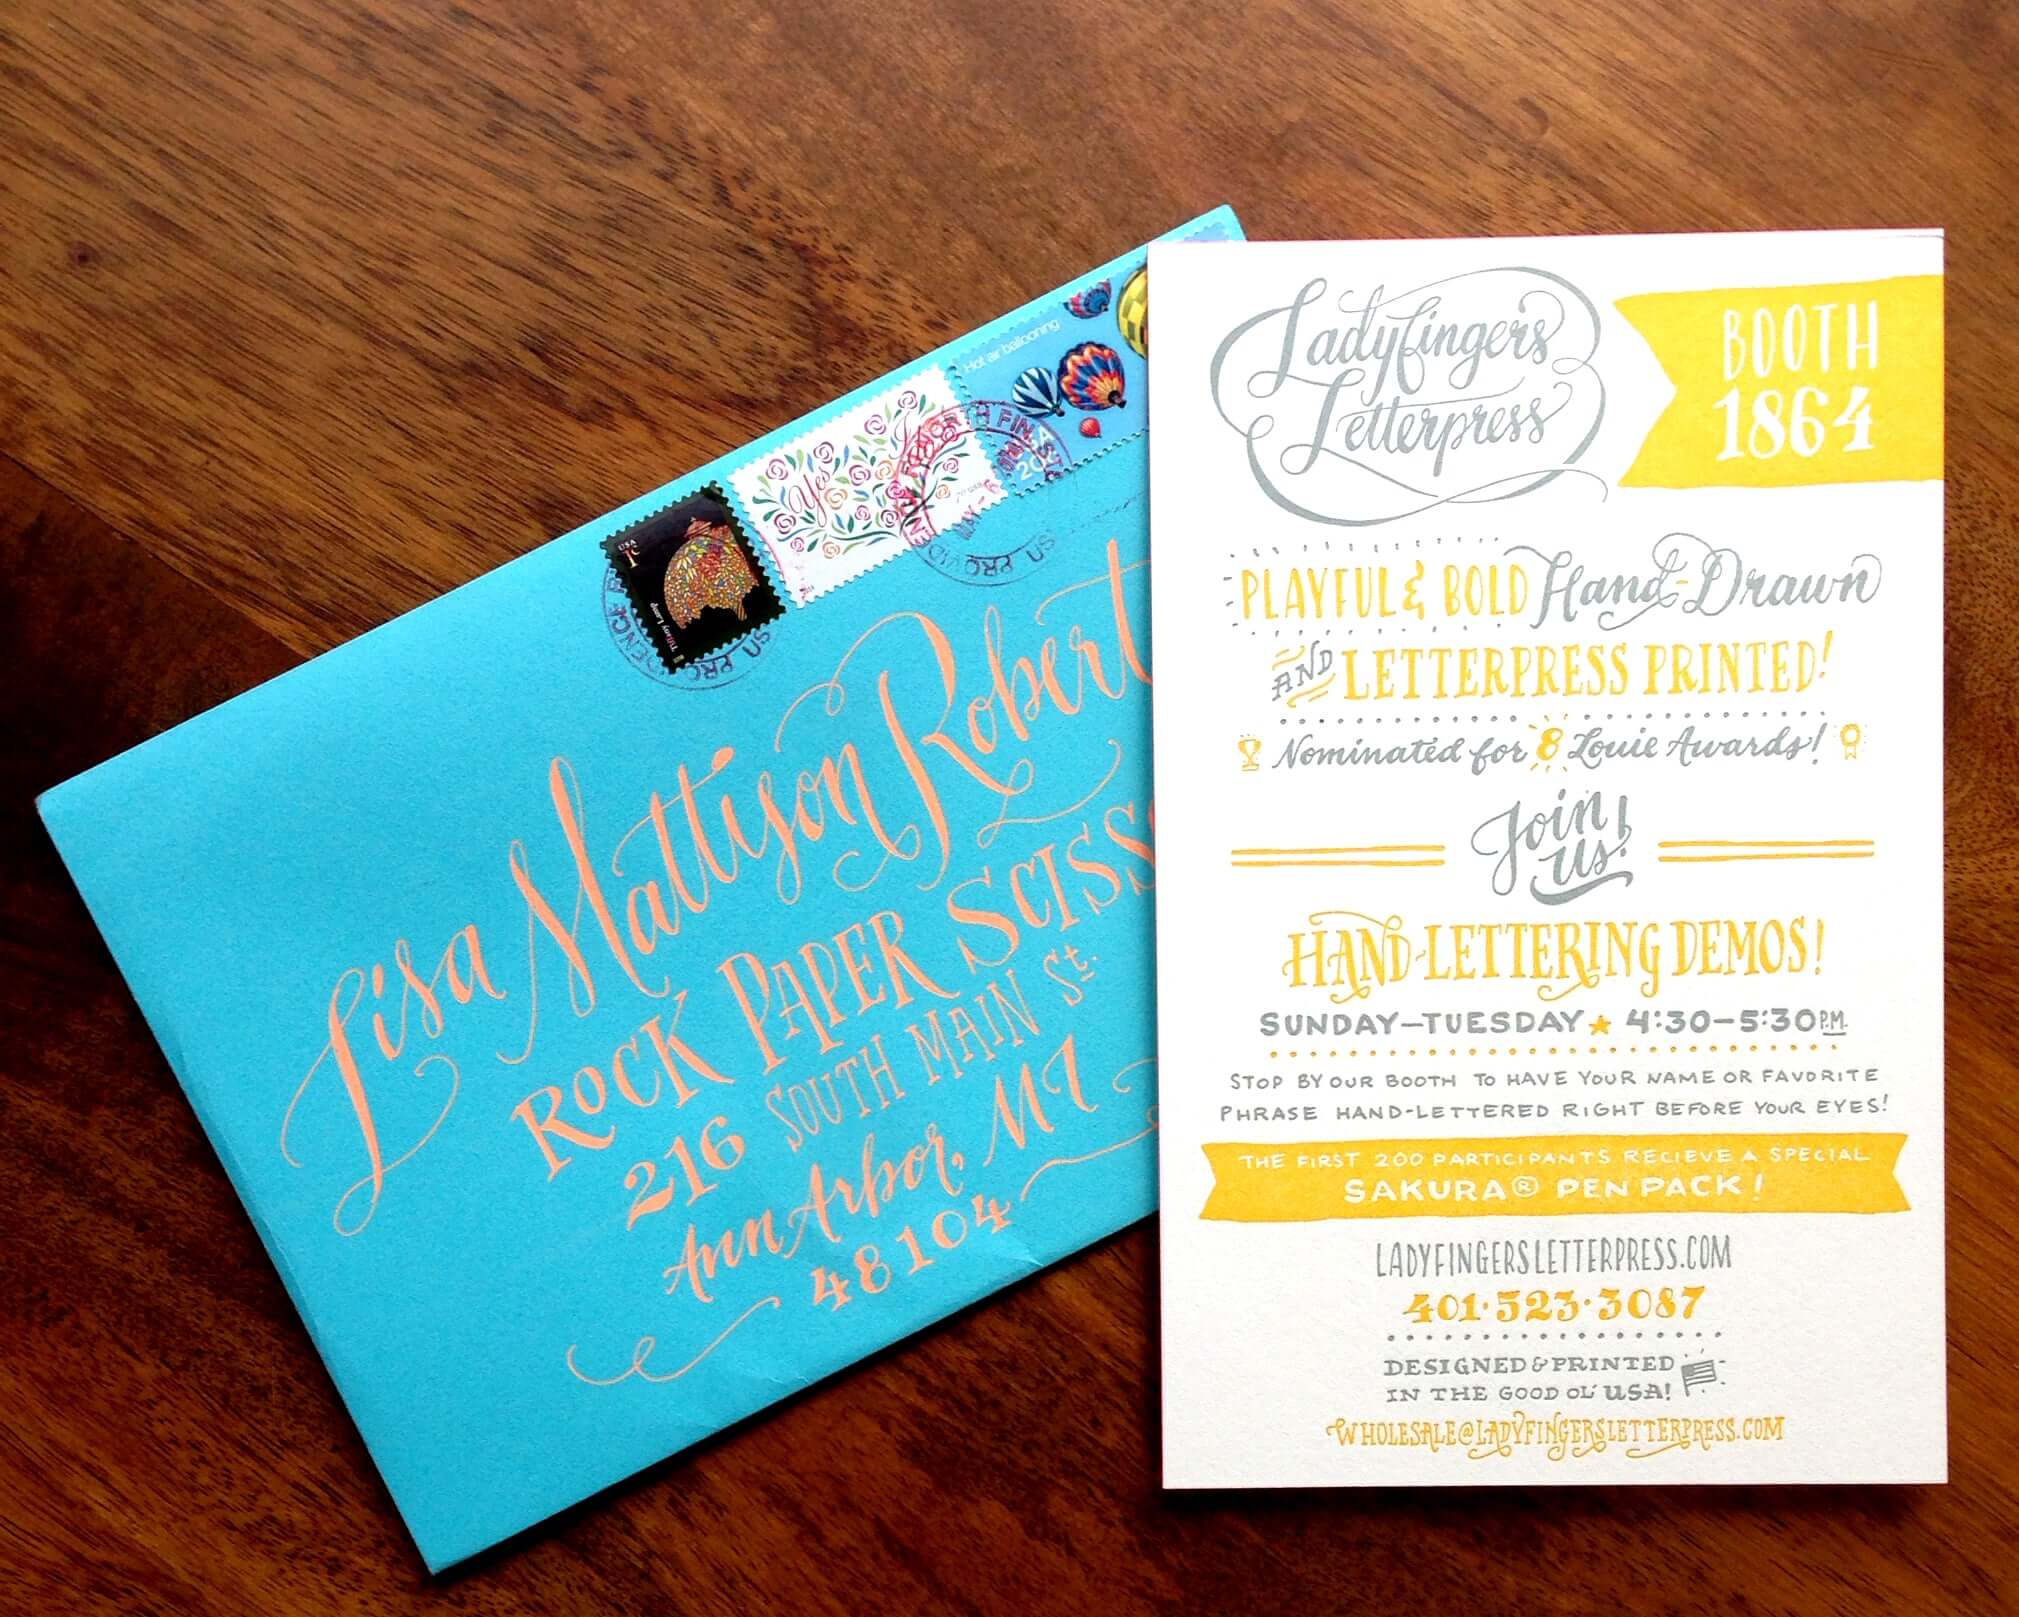 Hot air ballooning
Yes
USA 1c
Tiffany Lamp
Lisa Mattison Robert
ROCK PAPER SCISS
216 SOUTH MAIN St.
Ann Arbor, MI
48104
Ladyfingers
Letterpress
BOOTH
1864
PLAYFUL & BOLD Hand-Drawn
AND LETTERPRESS PRINTED!
Nominated for 8 Louie Awards!
Join
us!
HAND-LETTERING DEMOS!
SUNDAY–TUESDAY ★ 4:30–5:30 P.M.
STOP BY OUR BOOTH TO HAVE YOUR NAME OR FAVORITE
PHRASE HAND-LETTERED RIGHT BEFORE YOUR EYES!
THE FIRST 200 PARTICIPANTS RECIEVE A SPECIAL
SAKURA® PEN PACK!
LADYFINGERSLETTERPRESS.COM
401·523·3087
DESIGNED & PRINTED
IN THE GOOD OL' USA!
WHOLESALE@LADYFINGERSLETTERPRESS.COM